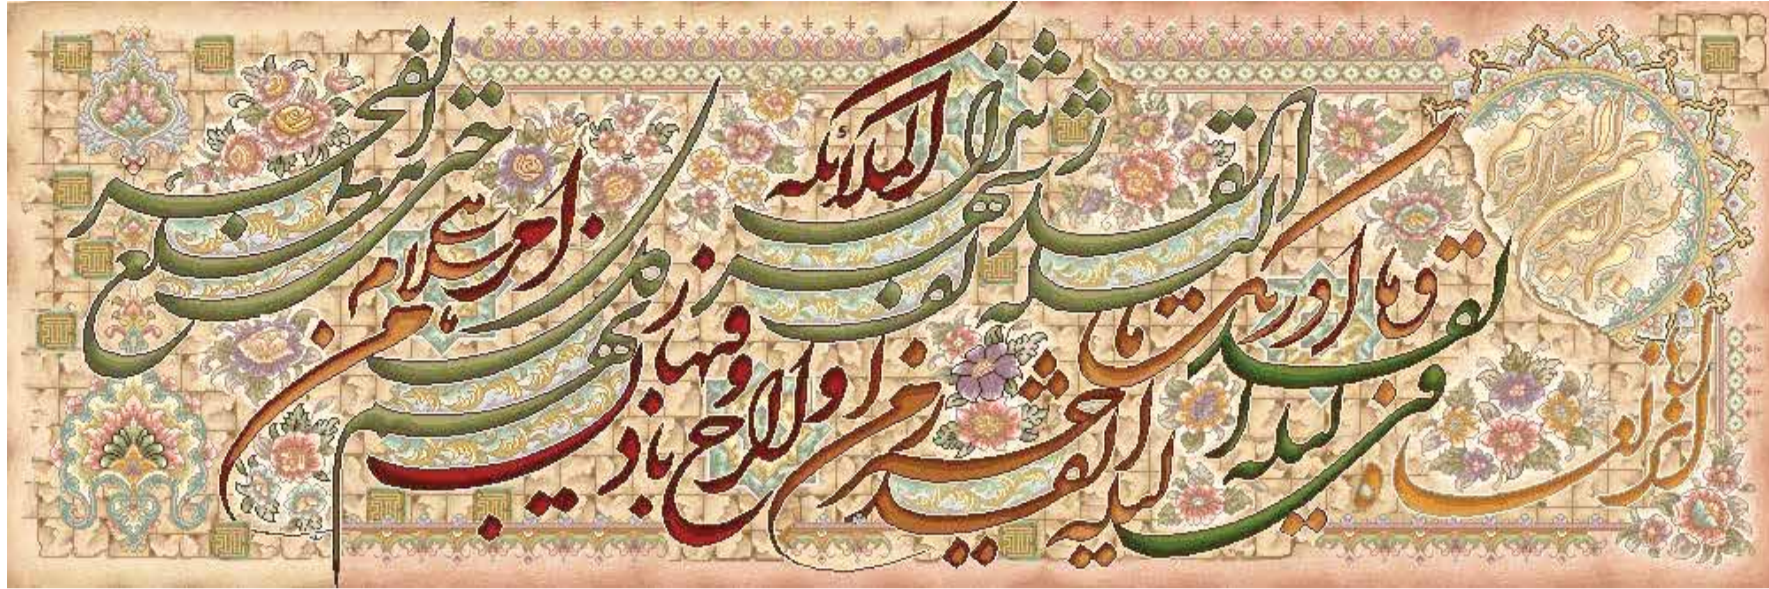 بسم الله الرحمن الرحیم
انا انزلناه فی لیلة القدر
وما ادریک ما لیلة القدر
لیلة القدر خیر من الف شهر
تنزل الملائکة والروح فیها باذن ربهم من کل امر
سلام هی حتی مطلع الفجر